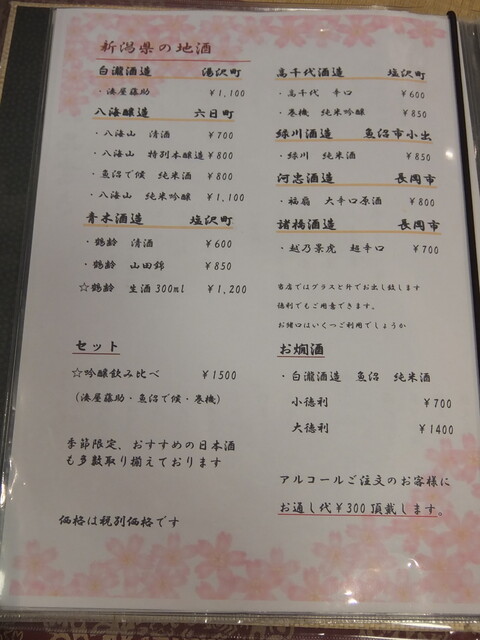 新潟県の地酒
白瀧酒造 湯沢町
・湊屋藤助 ¥1,100
八海醸造 六日町
・八海山 清酒 ¥700
・八海山 特別本醸造 ¥800
・魚沼で候 純米酒 ¥800
・八海山 純米吟醸 ¥1,100
青木酒造 塩沢町
・鶴齢 清酒 ¥600
・鶴齢 山田錦 ¥850
☆鶴齢 生酒300ml ¥1,200
セット
☆吟醸飲み比べ ¥1500
(湊屋藤助・魚沼で候・巻機)
季節限定、おすすめの日本酒
も多数取り揃えております
価格は税別価格です
高千代酒造 塩沢町
・高千代 辛口 ¥600
・巻機 純米吟醸 ¥850
緑川酒造 魚沼市小出
・緑川 純米酒 ¥850
河忠酒造 長岡市
・福扇 大辛口原酒 ¥800
諸橋酒造 長岡市
・越乃景虎 超辛口 ¥700
当店ではグラスと升でお出し致します
徳利でもご用意できます。
お猪口はいくつご利用でしょうか
お燗酒
・白瀧酒造 魚沼 純米酒
小徳利 ¥700
大徳利 ¥1400
アルコールご注文のお客様に
お通し代¥300頂戴します。